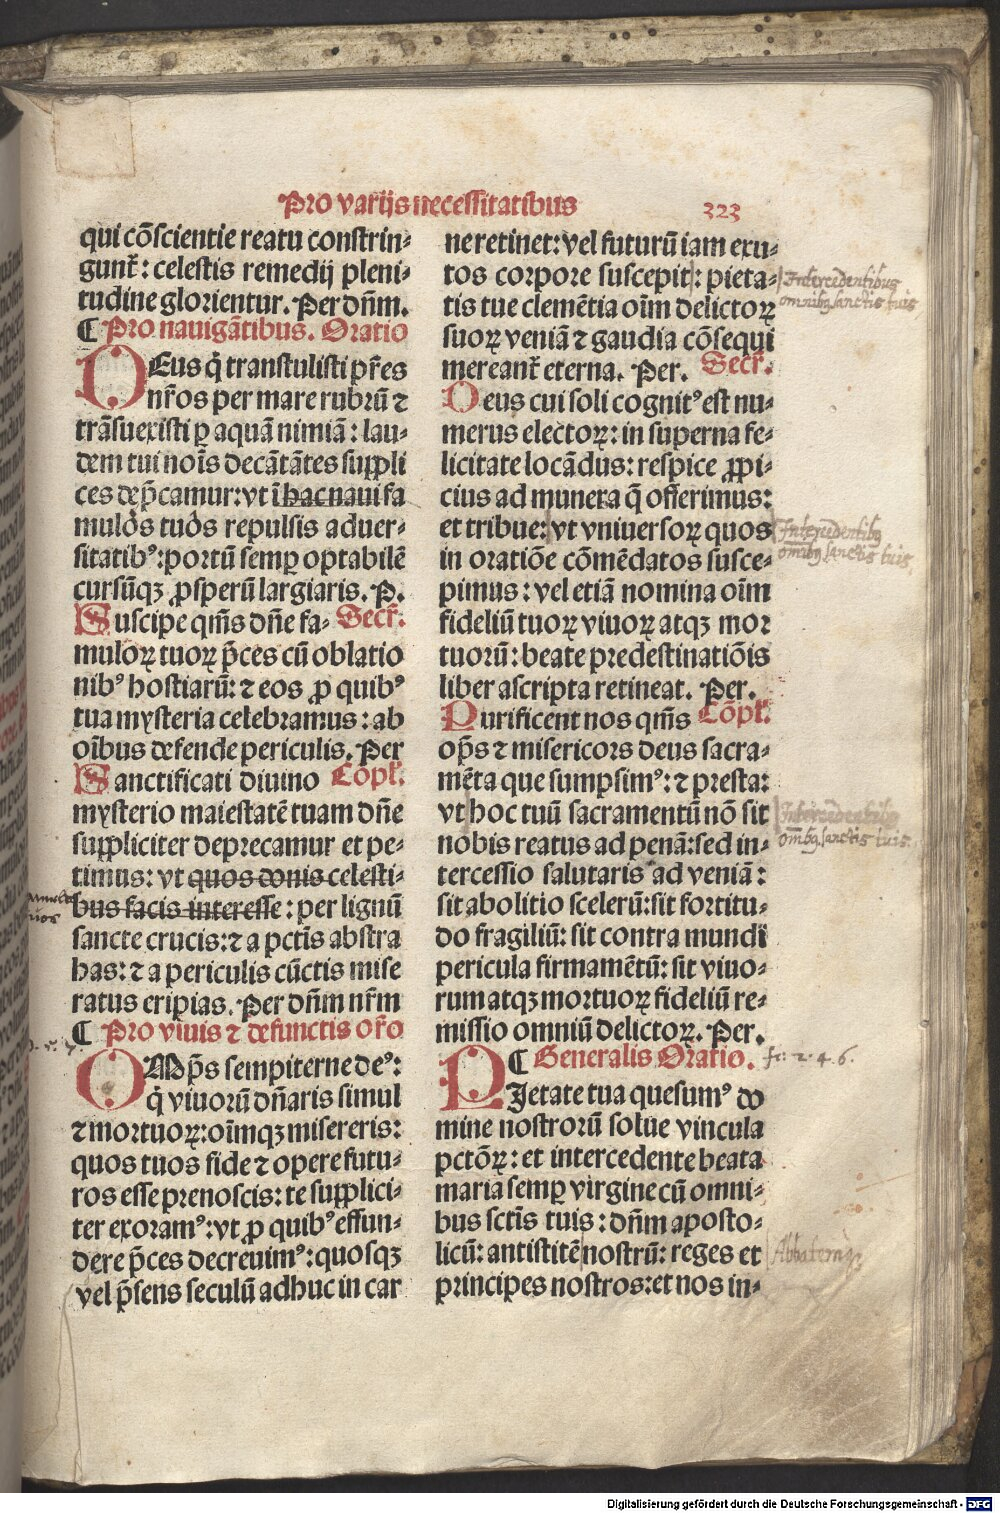 Pro varijs necessitatibus 323
qui cōscientie reatu constrin⸗
gunt᷑: celestis remedij pleni⸗
tudine glorientur. Per dn̄m.
¶ Pro nauigātibus. Oratio
DEus q̇ transtulisti pr̄es
nr̄os per mare rubrū ⁊
trāsuexisti ꝑ aquā nimiā: lau⸗
dem tui noīs decātātes suppli
ces dep̄camur: vt ī hac naui fa
mulos tuos repulsis aduer⸗
sitatibꝰ: portū semꝑ optabilē
cursūqꝫ ꝓsperū largiaris. P.
Suscipe qm̄s dn̄e fa⸗ Secr̄.
muloꝝ tuoꝝ p̄ces cū oblatio
nibꝰ hostiarū: ⁊ eos ꝓ quibꝰ
tua mysteria celebramus: ab
oībus defende periculis. Per
Sanctificati diuino Cōpl̄.
mysterio maiestatē tuam dn̄e
suppliciter deprecamur et pe⸗
timus: vt quos donis celesti⸗
bus facis interesse: per lignū
sancte crucis: ⁊ a pctīs abstra
has: ⁊ a periculis cūctis mise
ratus eripias. Per dn̄m nr̄m
¶ Pro viuis ⁊ defunctis or̄o
OMp̄s sempiterne deꝰ:
q̇ viuorū dn̄aris simul
⁊ mortuoꝝ: oīmqꝫ misereris:
quos tuos fide ⁊ opere futu⸗
ros esse prenoscis: te supplici⸗
ter exoramꝰ: vt ꝓ quibꝰ effun⸗
dere p̄ces decreuimꝰ: quosqꝫ
vel p̄sens seculū adhuc in car
ne retinet: vel futurū iam exu⸗
tos corpore suscepit: pieta⸗
tis tue clemētia oīm delictoꝝ
suoꝝ veniā ⁊ gaudia cōsequi
mereant᷑ eterna. Per. Secr̄.
Deus cui soli cognitꝰ est nu⸗
merus electoꝝ: in superna fe⸗
licitate locādus: respice ꝓpi⸗
cius ad munera q̄ offerimus:
et tribue: vt vniuersoꝝ quos
in oratiōe cōmēdatos susce⸗
pimus: vel etiā nomina oīm
fideliū tuoꝝ viuoꝝ atqꝫ mor
tuorū: beate predestinatiōis
liber ascripta retineat. Per.
Purificent nos qm̄s Cōpl̄.
op̄s ⁊ misericors deus sacra⸗
mēta que sumpsimꝰ: ⁊ presta:
vt hoc tuū sacramentū nō sit
nobis reatus ad penā: sed in⸗
tercessio salutaris ad veniā:
sit abolitio scelerū: sit fortitu⸗
do fragiliū: sit contra mundi
pericula firmamētū: sit viuo⸗
rum atqꝫ mortuoꝝ fideliū re⸗
missio omniū delictoꝝ. Per.
¶ Generalis Oratio.
PIetate tua quesumꝰ do
mine nostrorū solue vincula
pctōꝝ: et intercedente beata
maria semꝑ virgine cū omni⸗
bus sctīs tuis: dn̄m aposto⸗
licū: antistitē nostrū: reges et
principes nostros: et nos in⸗
Intercedentibus
omnibꝫ sanctis tuis
Intercedentibꝫ
omibꝫ sanctis tuis.
Intercedentibꝫ
om̄ibꝫ sanctis tuis.
fe: 2. 4. 6.